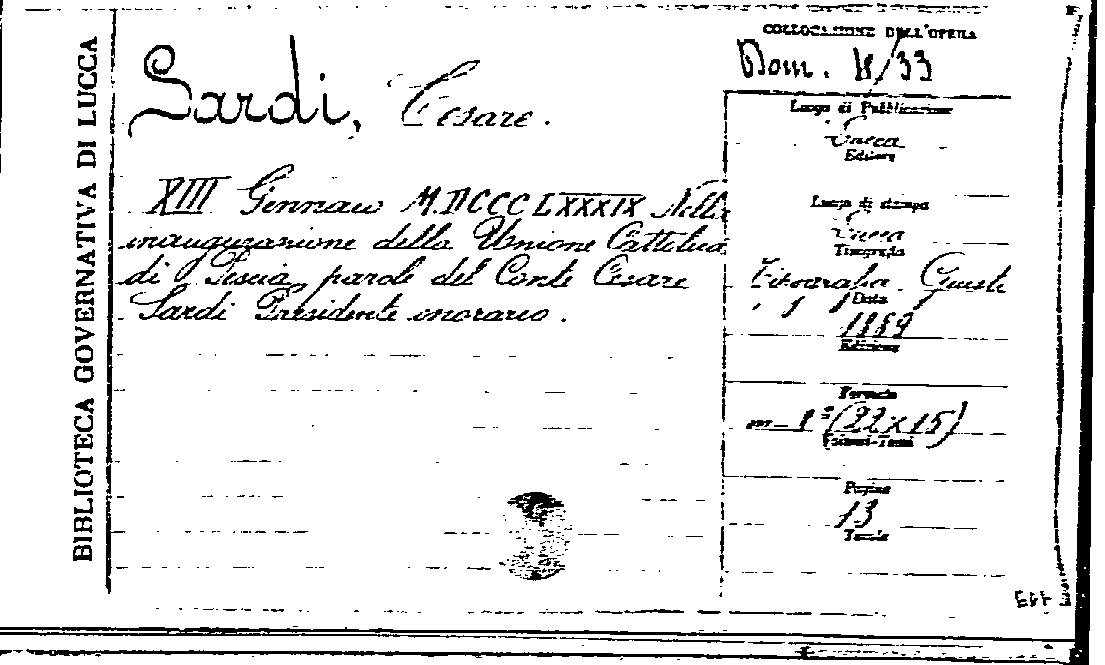 BIBLIOTECA GOVERNATIVA DI LUCCA
Sardi, Cesare.
XIII Gennaio MDCCCLXXXIX Nella
inaugurazione della Unione Cattolica
di Pescia parole del Conte Cesare
Sardi Presidente onorario.
COLLOCAZIONE DELL'OPERA
Luogo di Pubblicazione
Lucca
Editore
Luogo di stampa
Lucca
Tipografia
Tipografia Giusti
Data
1889
Edizione
Formato
8° (22x15)
Volumi-Tomi
Pagine
13
Tavole